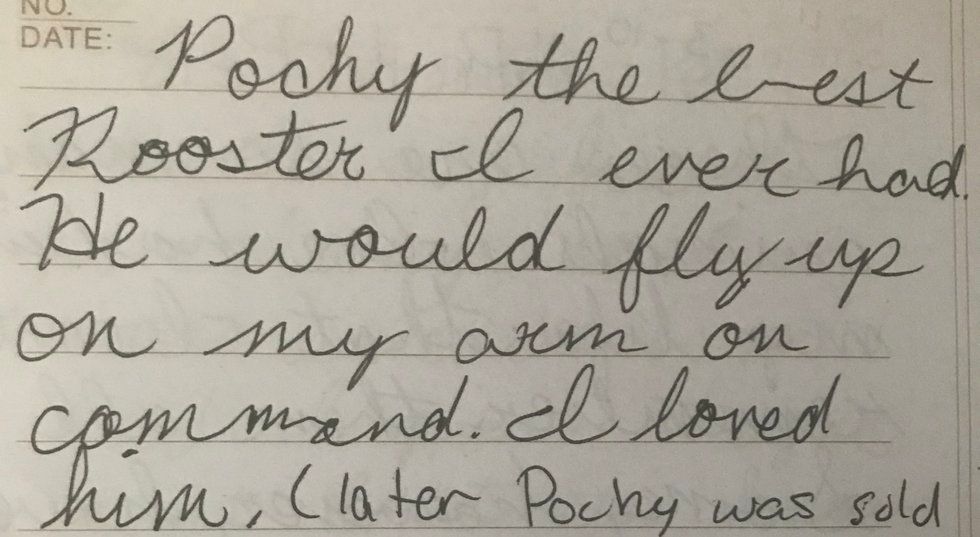 NO.
DATE:
Pochy the best
Rooster I ever had.
He would fly up
on my arm on
command. I loved
him, (later Pochy was sold